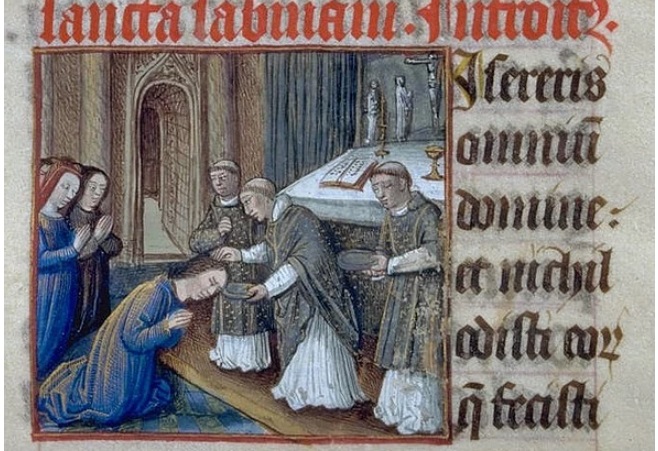 sancta sabinam. Introitꝫ.
Misereris
omniū
domine:
et nichil
odisti eoꝝ
q̄ fecisti